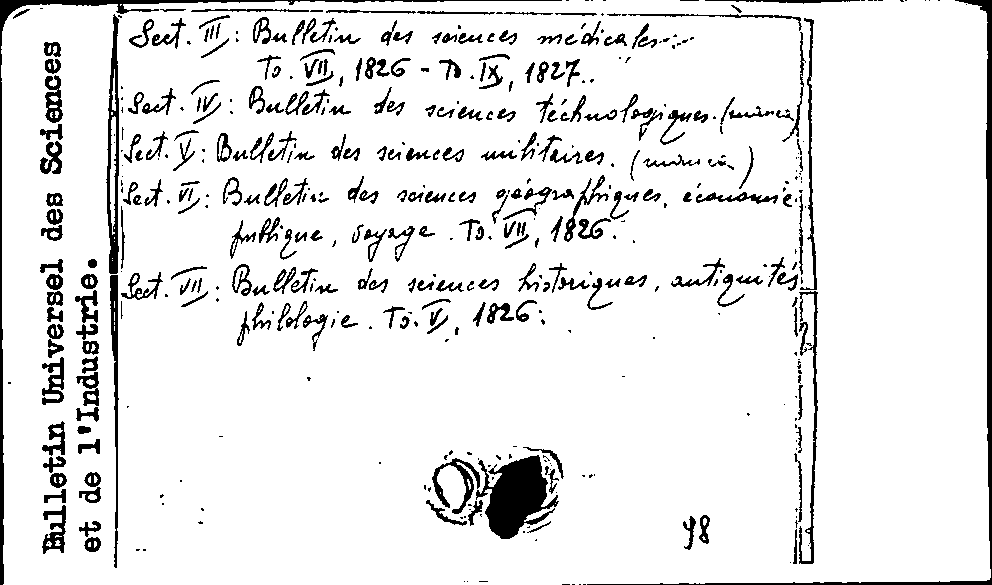 Bulletin Universel des Sciences
et de l'Industrie.
Sect. III: Bulletin des sciences médicales.
To. VII, 1826 - To. IX, 1827.
Sect. IV: Bulletin des sciences téchnologiques. (mancà)
Sect. V: Bulletin des sciences militaires. (mancà)
Sect. VI: Bulletin des sciences géographiques, économie
publique, voyage. To. VII, 1826.
Sect. VII: Bulletin des sciences historiques, antiquités
philologie. To. V, 1826.
98